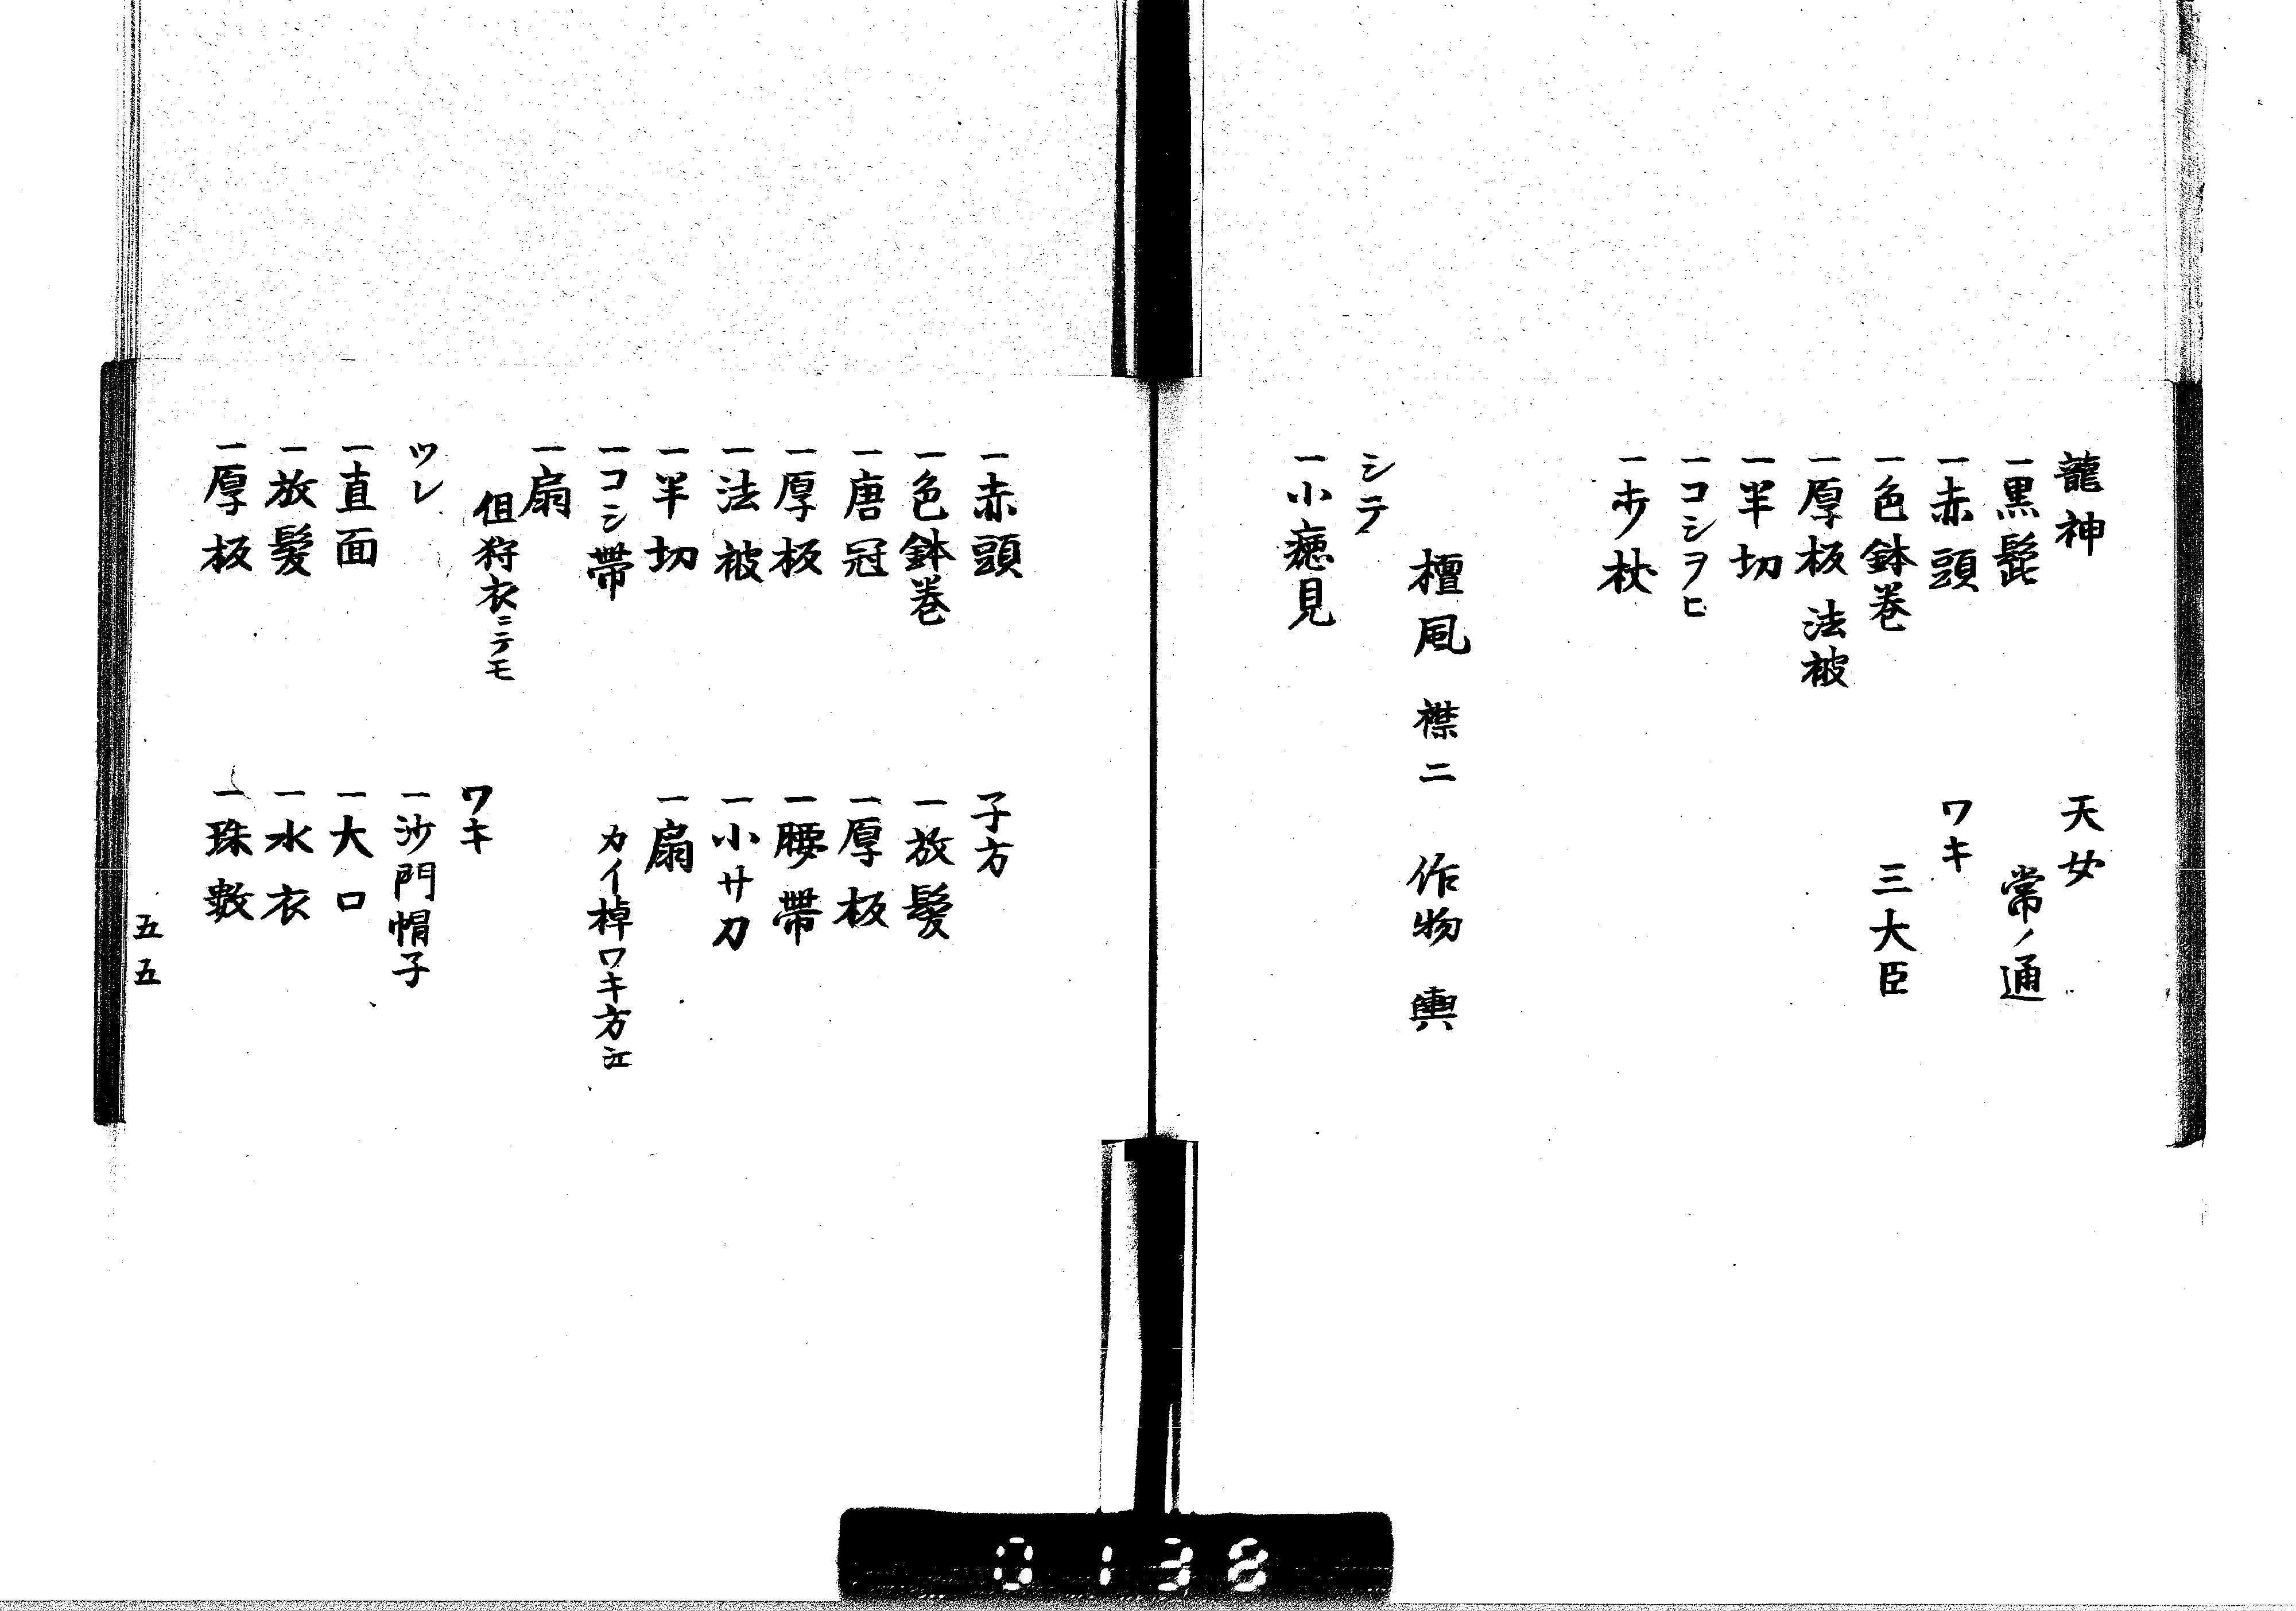 龍神
一黒髭
一赤頭
一色鉢巻
一厚板 法被
一半切
一コシヲヒ
一歩杖
天女
常ノ通
ワキ
三大臣
檀風 襟二 作物 輿
シテ
一小癋見
一赤頭
一色鉢巻
一唐冠
一厚板
一法被
一半切
一コシ帯
一扇
但狩衣ニテモ
ツレ
一直面
一放髪
一厚板
子方
一放髪
一厚板
一腰帯
一小サ刀
一扇
カイ棹ワキ方江
ワキ
一沙門帽子
一大口
一水衣
一珠数
五五
0138